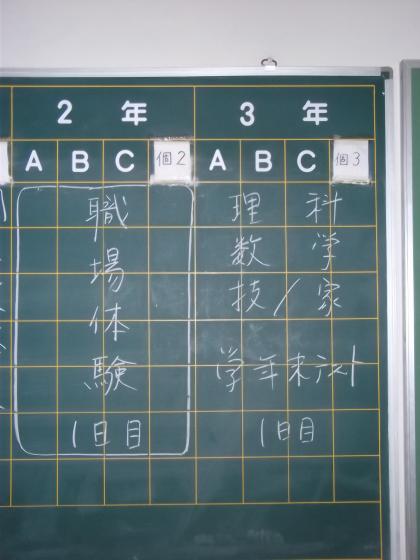 2年
A B C 個2
職
場
体
験
1日目
3年
A B C 個3
理科
数学
技/家
学年末テスト
1日目